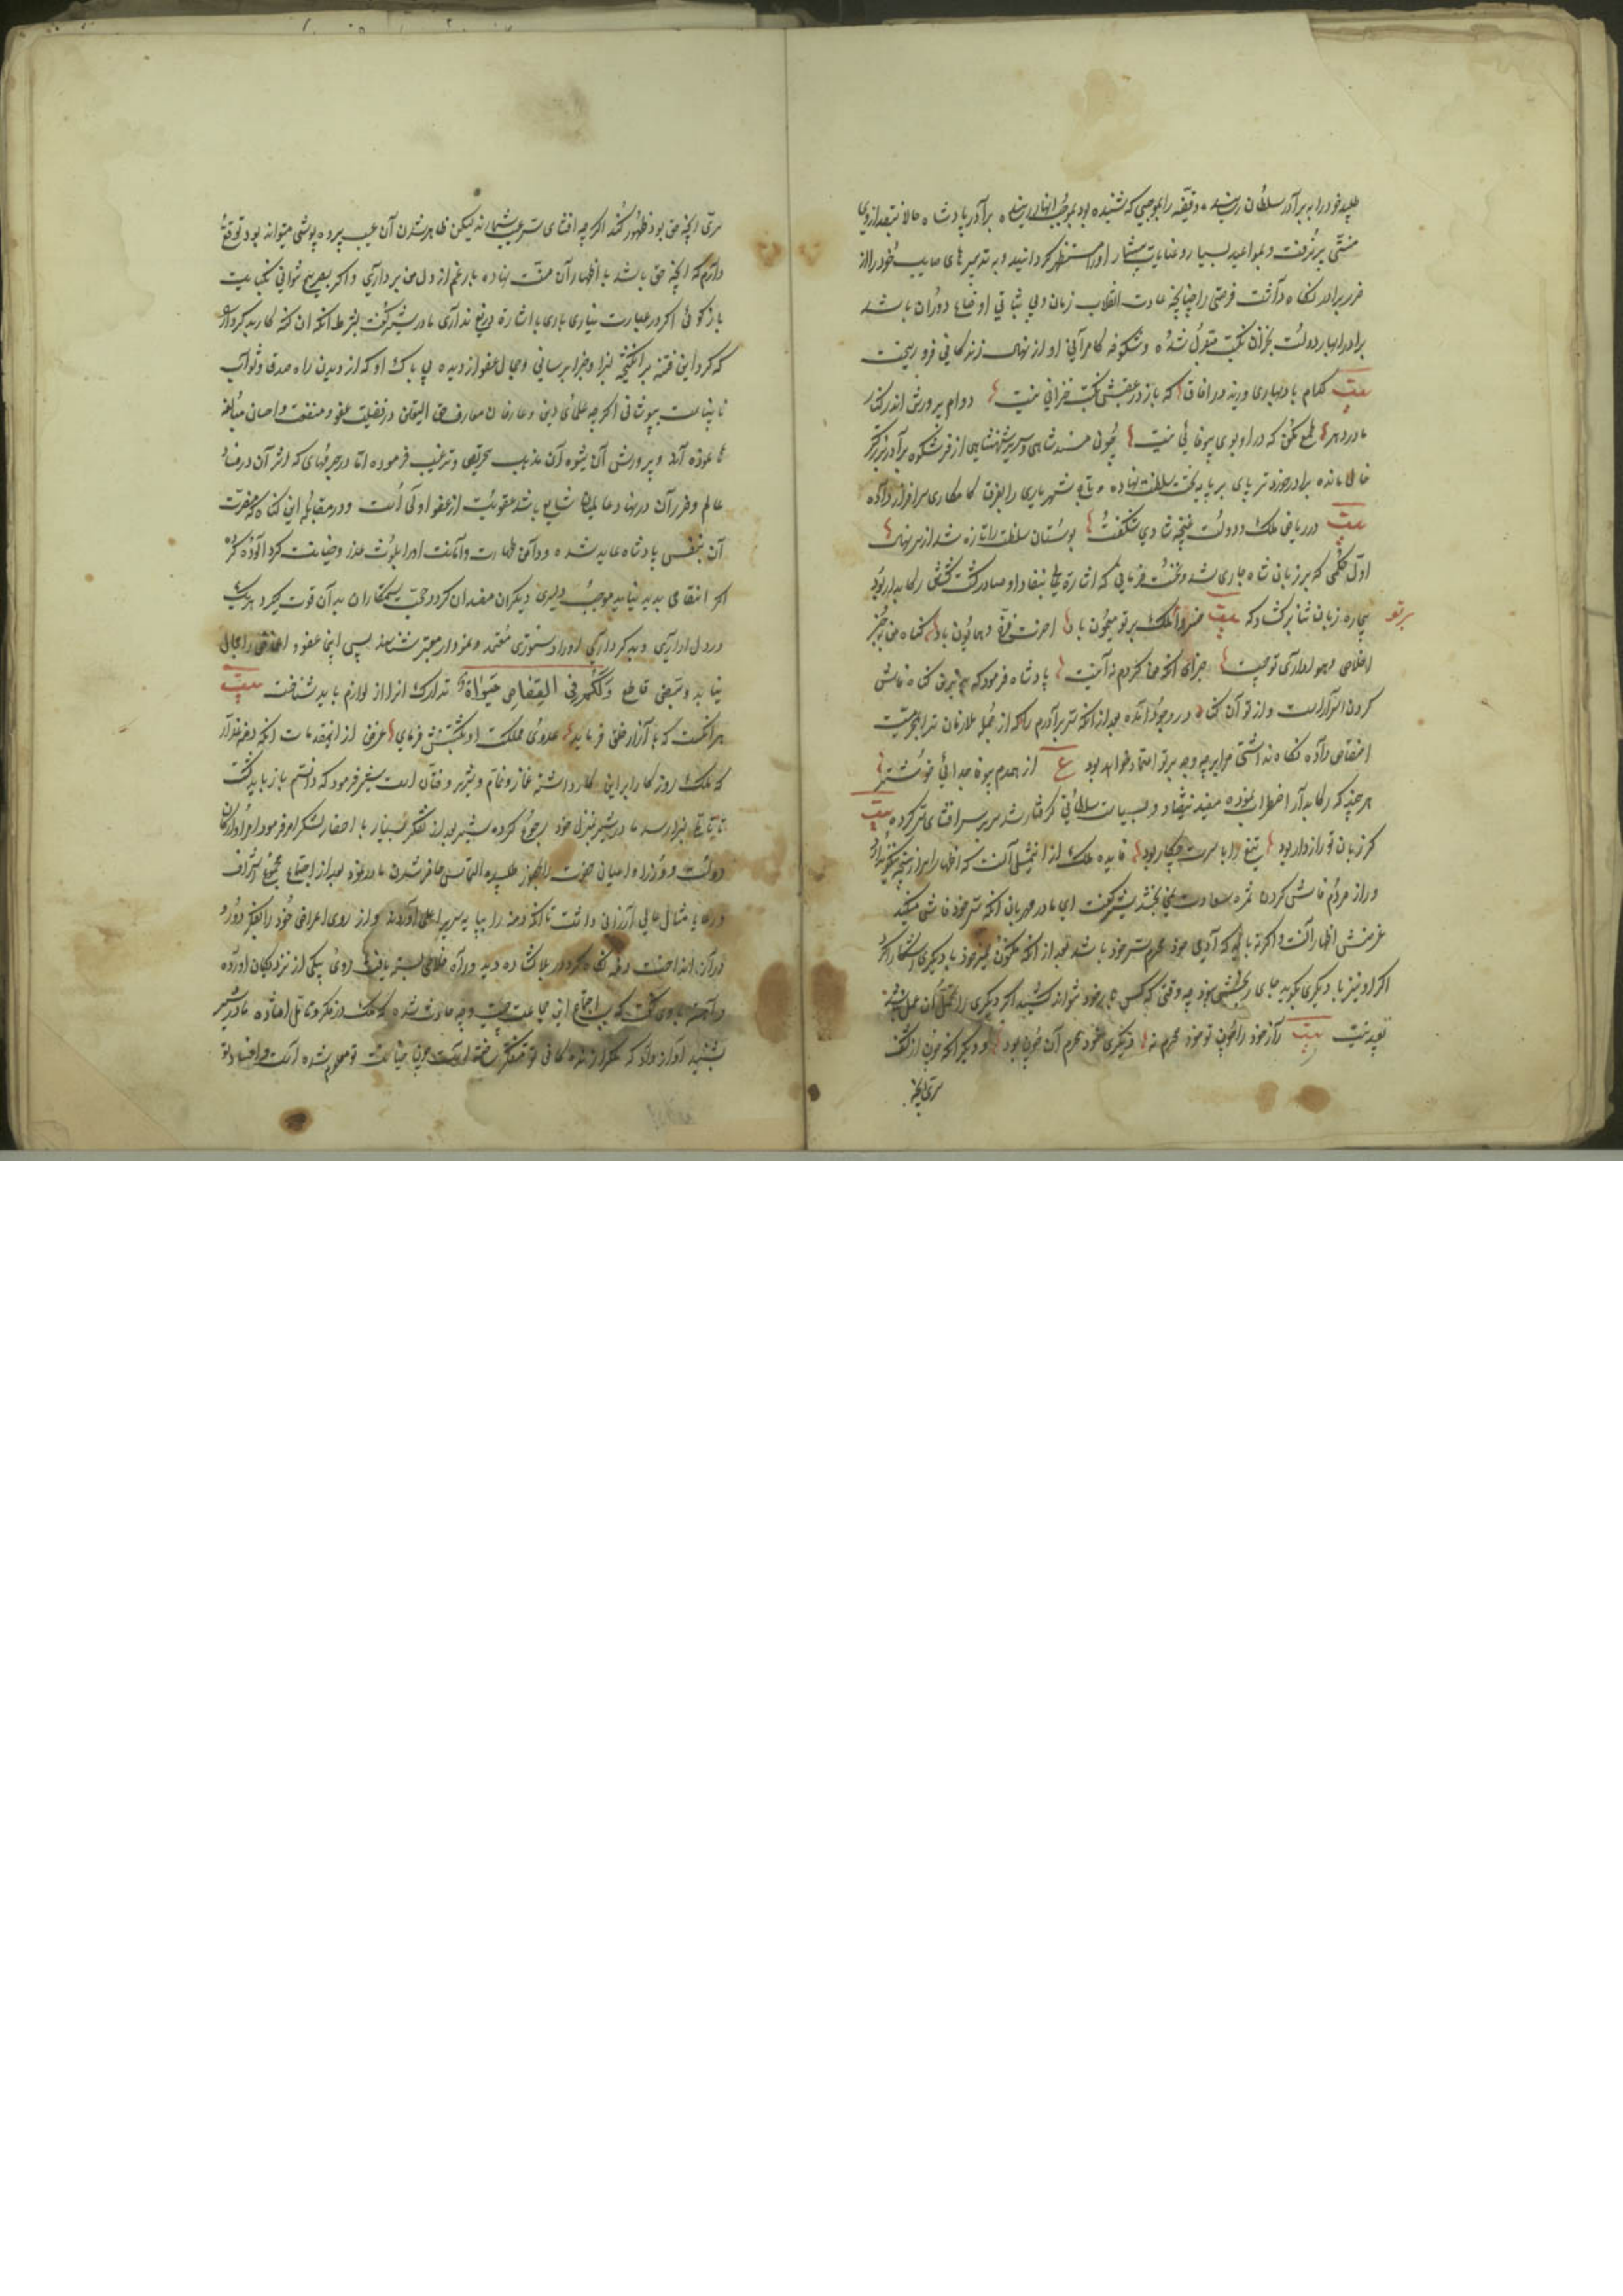 طلبید خود را به برادر سلطان رسانید و دقیقه را بموجبی که شنیده بود بموجب انهارسانیده برادر پادشاه حالا نبقد از وی
منتی پذیرفت و بمواعید بسیار و عنایات بیشمار او را مستظهر گردانید و به تدبیرهای صایب خود را از
ضرر برادر نگاه داشت فرصتی را چنانچه عادت انقلاب زمان و بی ثباتی اوضاع دوران باشد
برادر را بهار دولت بخزان نکبت متبدل شده و شکوفه کامرانی او از نهال زندگانی فرو ریخت
بیت کدام باد بهاری وزید در افاق که باز در عقبش نکبت خزانی نیست دوام پرورش اندر کنار
مادر دهر طمع مکن که در او بوی بیوفائی نیست چون مسند شاهی و سریر شهنشاهی از فر شکوه برادر بزرگتر
خالی مانده برادر خوردتر پای بر پایه تخت سلطنت نهاده و تاج شهریاری را بفرق کامکاری سرافراز داده
بیت در ریاض ملک و دولت غنچه شادی شکفت بوستان سلطنت را تازه شد از سر نهال
اول حکمی که بر زبان شاه جاری شد و نخست فرمانی که اشارة بنفاد او صادر گشت کشتن رکابدار بود
بیچاره زبان نیاز برگشاد که بیت خسروا ملک بر تو میمون باد فرخ و همایون باد گناه من بجز
برتو
اخلاص و هواداری تو چیست جزای انکه من کردم نه اینست پادشاه فرمود که بترین گناه فاش
کردن اسرار است و از تو آن گناه در وجود آمده بعد از انکه سر برادرم را که از جمله ملازمان ترا بمحرمیت
اختصاص داده نگاه نداشتی مرا بر چه وجه بر تو اعتماد خواهد بود ع از همدم بیوفا جدائی خوشتر
هرچند که رکابدار اضطراب نموده مفید نیفتاد و بسیاست سلطانی گرفتار شد سر بر سر افشای سر کرده بیت
گر زبان تو رازدار بود تیغ را با سرت چکار بود فایده ملک از این مثل آنست که اظهار اسرار نتیجه نیکو ندارد
و راز مردم فاش کردن ثمره سعادت نمی بخشد شیر گفت ای مادر مهربان انکه سر خود فاش میکند
غرضش اظهار آنست و اگر نه باید که آدمی خود محرم سر خود باشد بعد از انکه مکنون ضمیر خود با دیگری آشکارا کرد
اگر او نیز با دیگری بگوید جای رنجش نبود چه وقتی که کسی بار خود نتواند کشید اگر دیگری را تحمل آن
بعید نیست بیت راز خود را چون تو خود محرم نه دیگری خود محرم آن چون بود و دیگر انکه چون از گفت
سری انچه
سری انچه حق بود ظهور کند اگرچه افشای سر عیب شمارند لیکن ظاهر شدن آن عیب پرده پوشی میتواند بود توقع
دارم که انچه حق باشد با اظهار آن منت نهاده بار غم از دل من برداری و اگر بصریح نتوانی بکنایت
بازگوئی و اگر در عبارت نیاری باری باشارة دریغ نداری مادر شیر گفت بشرط انکه ان کنه کار بدکردار
که گرد این فتنه برانگیخته بسزا و جزا برسانی و جمال عفو از دیده بی باک او که از دیدن راه صدق و ثواب
نابیناست بپوشانی اگرچه علمای دین و عارفان معارف حق الیقین در فضیلت عفو و منقبت احسان مبالغه
ها نموده اند و پرورش آن شیوه آن مذهب تحریض و ترغیب فرموده اما در جرمهای که اثر آن در فساد
عالم و ضرر آن در نهاد عالمیان شایع باشد عقوبت از عفو اولی است و در مقابله این گناه که مضرت
آن بنفس پادشاه عاید شده و دامن طهارت و امانت او را بلوث غدر و خیانت آلوده کرده
اگر انتقامی پدید نیاید موجب دلیری دیگران مفسدان گردد و حجت ستمکاران بدان قوت گیرد
در دل ازاری و بدکرداری او را دستوری معتمد و نموداری معتبر شناسند پس اینجا عفو و اغماض را مجال
نباید و نص قاطع وَلَكُمْ فِي القِصَاصِ حَيَوَاةٌ تدارک انرا از لوازم باید شناخت بیت
هرانکست که با آزار خلق فرماید عدوی مملکت او بکشتنش فرمای غرض از این مقدمات انکه دمنه غدار
که ملک روزگار را بر این کار داشته غماز و نمام و شریر و فتان است شیر فرمود که دانستم باز باید گشت
تا برسد مادر شیر بمنزل خود رجوع کرده شیر بعد از تفکر بسیار با احضار لشکر امر فرمود امرا و ارکان
دولت و وزرا و اعیان حضرت را بحضور طلبیده التماس حاضر شدن مادر نمود بعد از اجتماع مجموع اشراف
مثال عالی ارزانی داشت تا انکه دمنه را بپایه سریر اعلی آوردند و از روی اعراض خود را بفکر دور و
دراز انداخت دمنه نگاه کرد در بلا گشاده دید و راه خلاص بسته یافت روی بیکی از نزدیکان اورده
و آهسته با وی گفت که سبب اجتماع این جماعت چیست و چه حادث شده که ملک در فکر و تامل افتاده مادر شیر
بشنید آواز داد که ملک را زندگانی تو متفکر ساخته است چون خیانت تو معلوم شده است و افساد تو